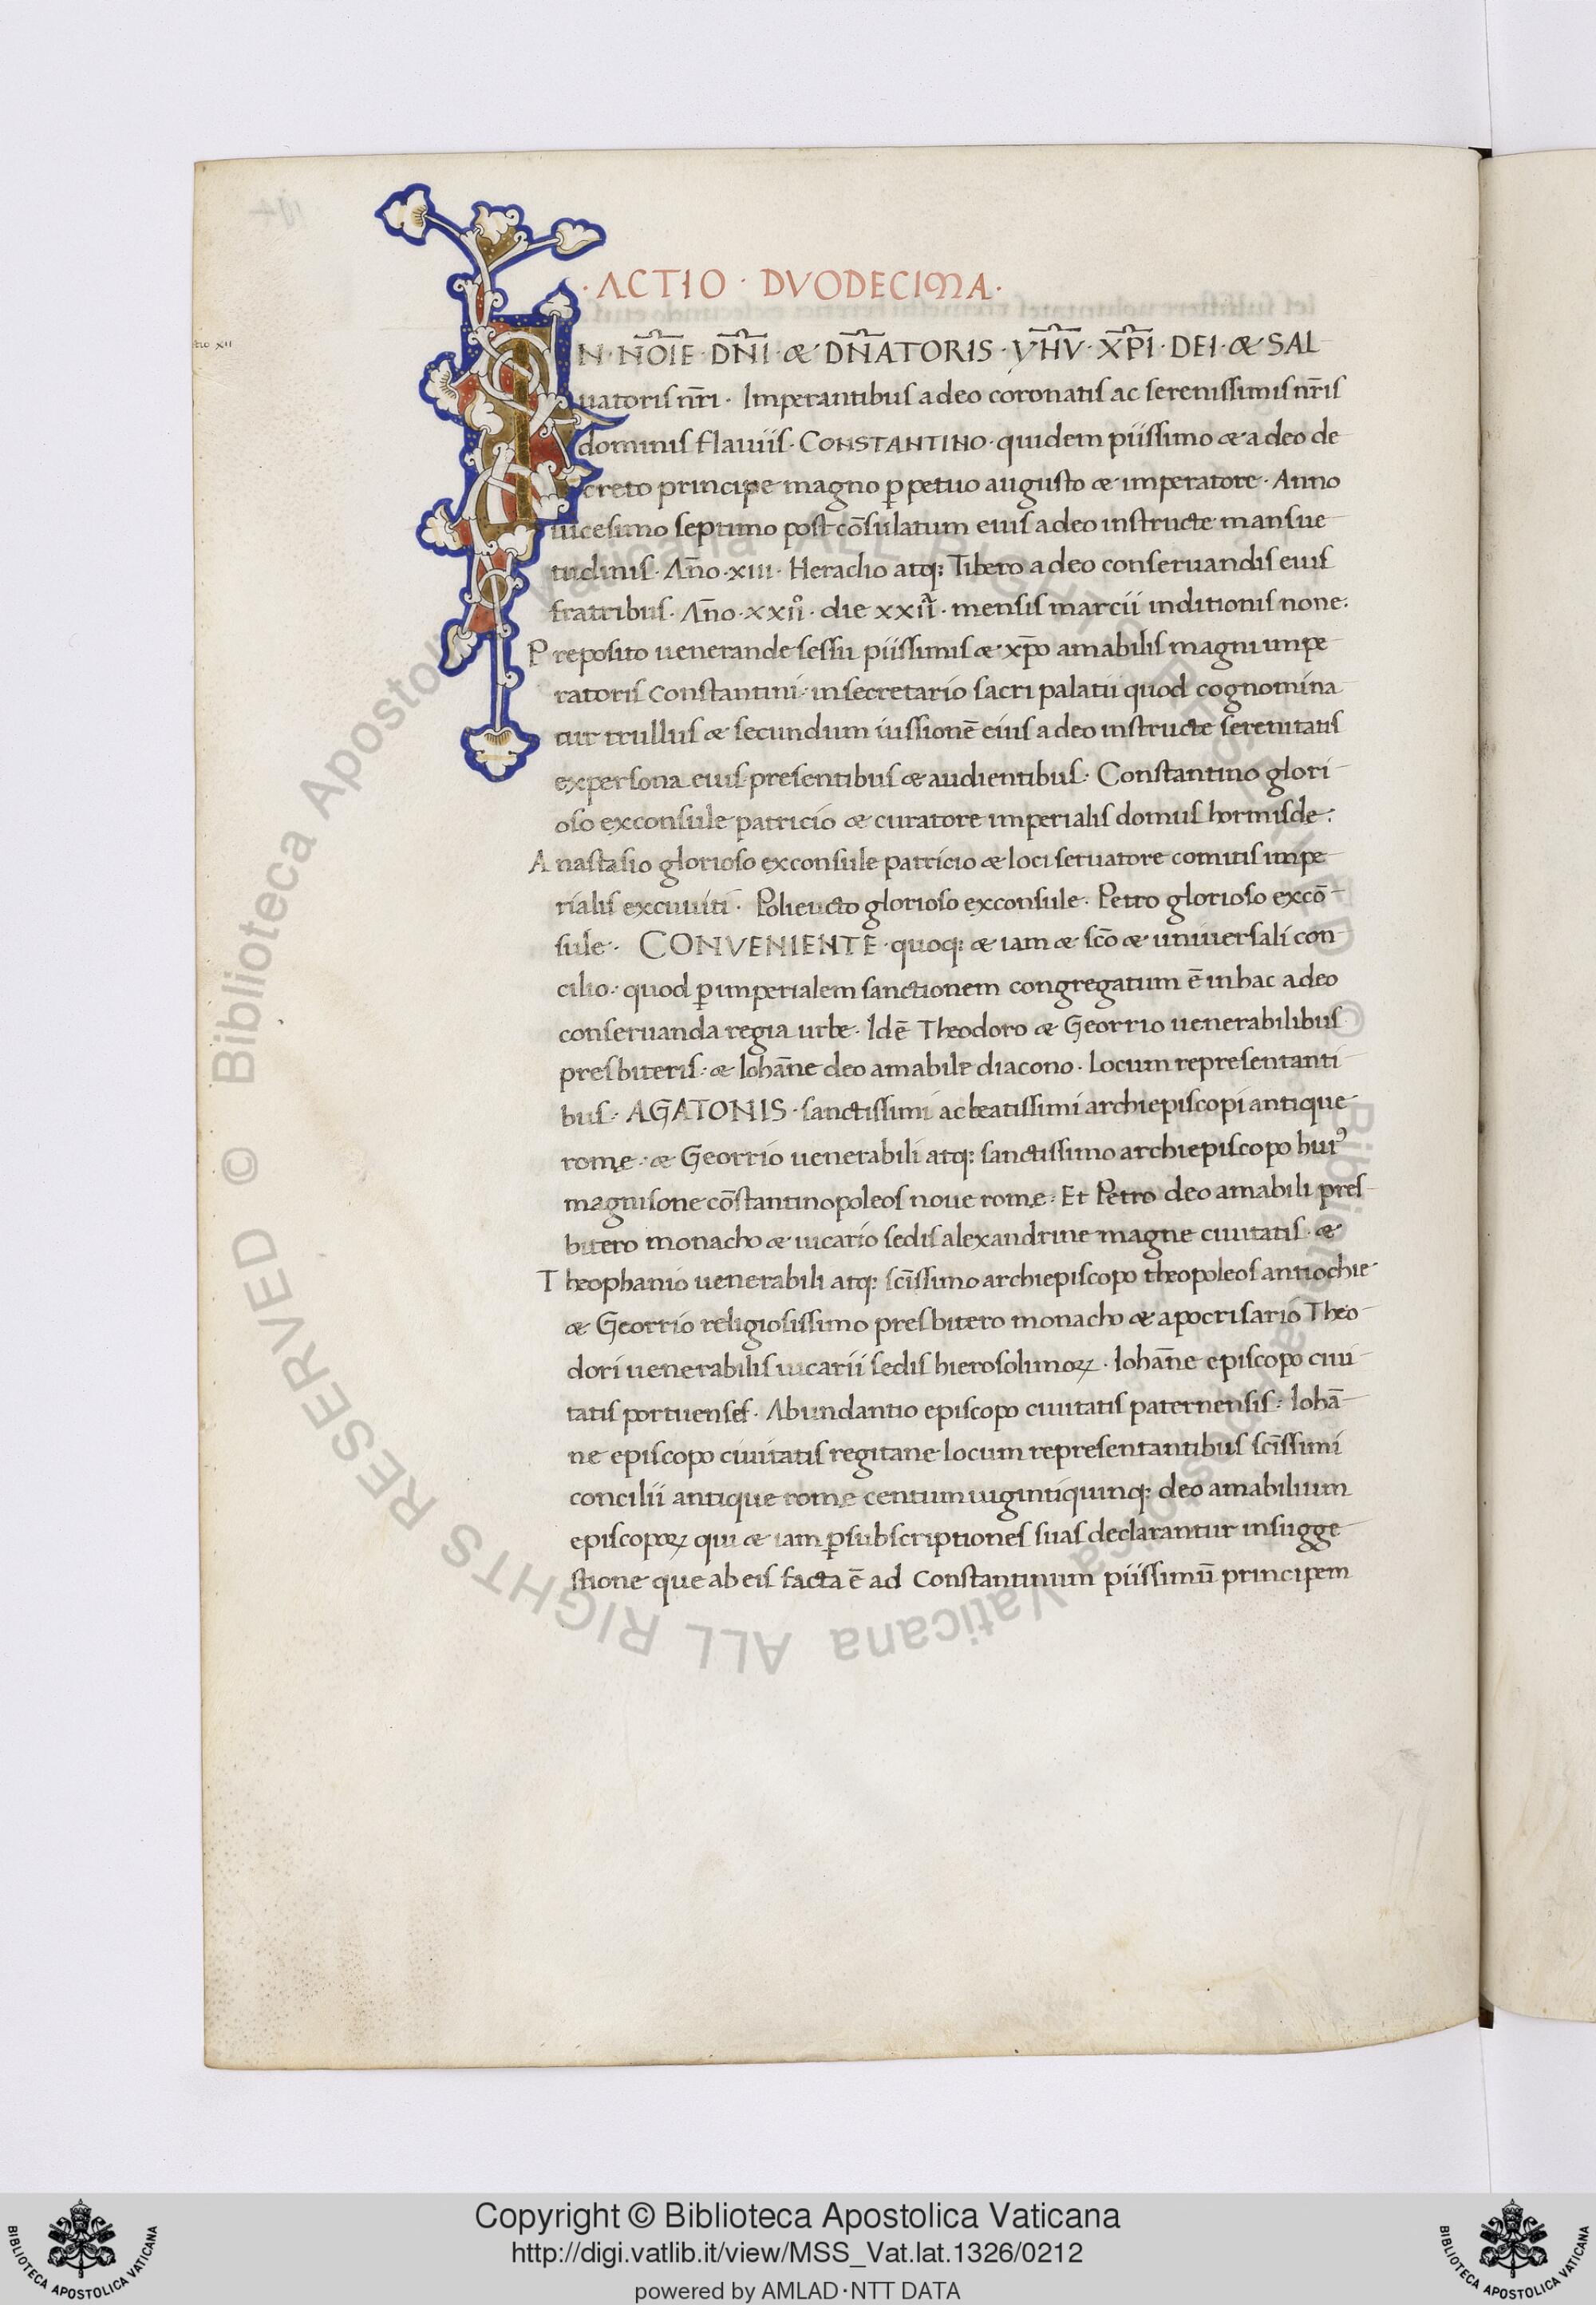 · ACTIO · DVODECIMA ·
tio XII
IN · NOIE · DNI · & · DNATORIS · YHV · XPI · DEI · & SAL
uatoris nr̄i · Imperantibus a deo coronatis ac serenissimis nr̄is
dominis flauiis · CONSTANTINO · quidem piissimo & a deo de
creto principe magno p̱petuo augusto & imperatore · Anno
uicesimo septimo post cōsulatum eius a deo instructe mansue
tudinis · Añno · xiii · Heraclio atq; Tibero a deo conseruandis eius
fratribus · Añno · xxii° · die xxiiª · mensis marcii inditionis none:
Preposito uenerande sessu piissimis & xp̄o amabilis magni impe
ratoris constantini · in secretario sacri palatii quod cognomina
tur trullus & secundum iussionē eius a deo instructe serenitatis
ex persona eius presentibus & audientibus · Constantino glori
oso exconsule patricio & curatore imperialis domus hormisde:
Anastasio glorioso exconsule patricio & loci seruatore comitis impe
rialis excuuiti · Polieucto glorioso exconsule · Petro glorioso excō
sule · CONVENIENTE · quoq; & iam & scō & uniuersali con
cilio · quod p̱ imperialem sanctionem congregatum ē in hac a deo
conseruanda regia urbe · Idē Theodoro & Georrio uenerabilibus
presbiteris · & Iohāne deo amabile diacono · Locum representanti
bus · AGATONIS · sanctissimi ac beatissimi archiepiscopi antique
rome · & Georrio uenerabili atq; sanctissimo archiepiscopo hui⁹
magnisone cōstantinopoleos noue rome · Et Petro deo amabili pres
bitero monacho & uicario sedis alexandrine magne ciuitatis · &
Theophanio uenerabili atq; scīssimo archiepiscopo theopoleos antiochie
& Georrio religiosissimo presbitero monacho & apocrisario Theo
dori uenerabilis uicarii sedis hierosolimoꝝ · Iohāne episcopo ciui
tatis portuenses · Abundantio episcopo ciuitatis paternensis : Iohā
ne episcopo ciuitatis regitane locum representantibus scīssimi
concilii antique rome centum uigintiquinq; deo amabilium
episcopoꝝ qui & iam p̱ subscriptiones suas declarantur in sugge
stione que ab eis facta ē ad Constantinum piissimū principem
© Biblioteca Apostolica Vaticana ALL RIGHTS RESERVED © Biblioteca Apostolica Vaticana ALL RIGHTS RESERVED
Copyright © Biblioteca Apostolica Vaticana
http://digi.vatlib.it/view/MSS_Vat.lat.1326/0212
powered by AMLAD·NTT DATA
BIBLIOTECA APOSTOLICA VATICANA
BIBLIOTECA APOSTOLICA VATICANA